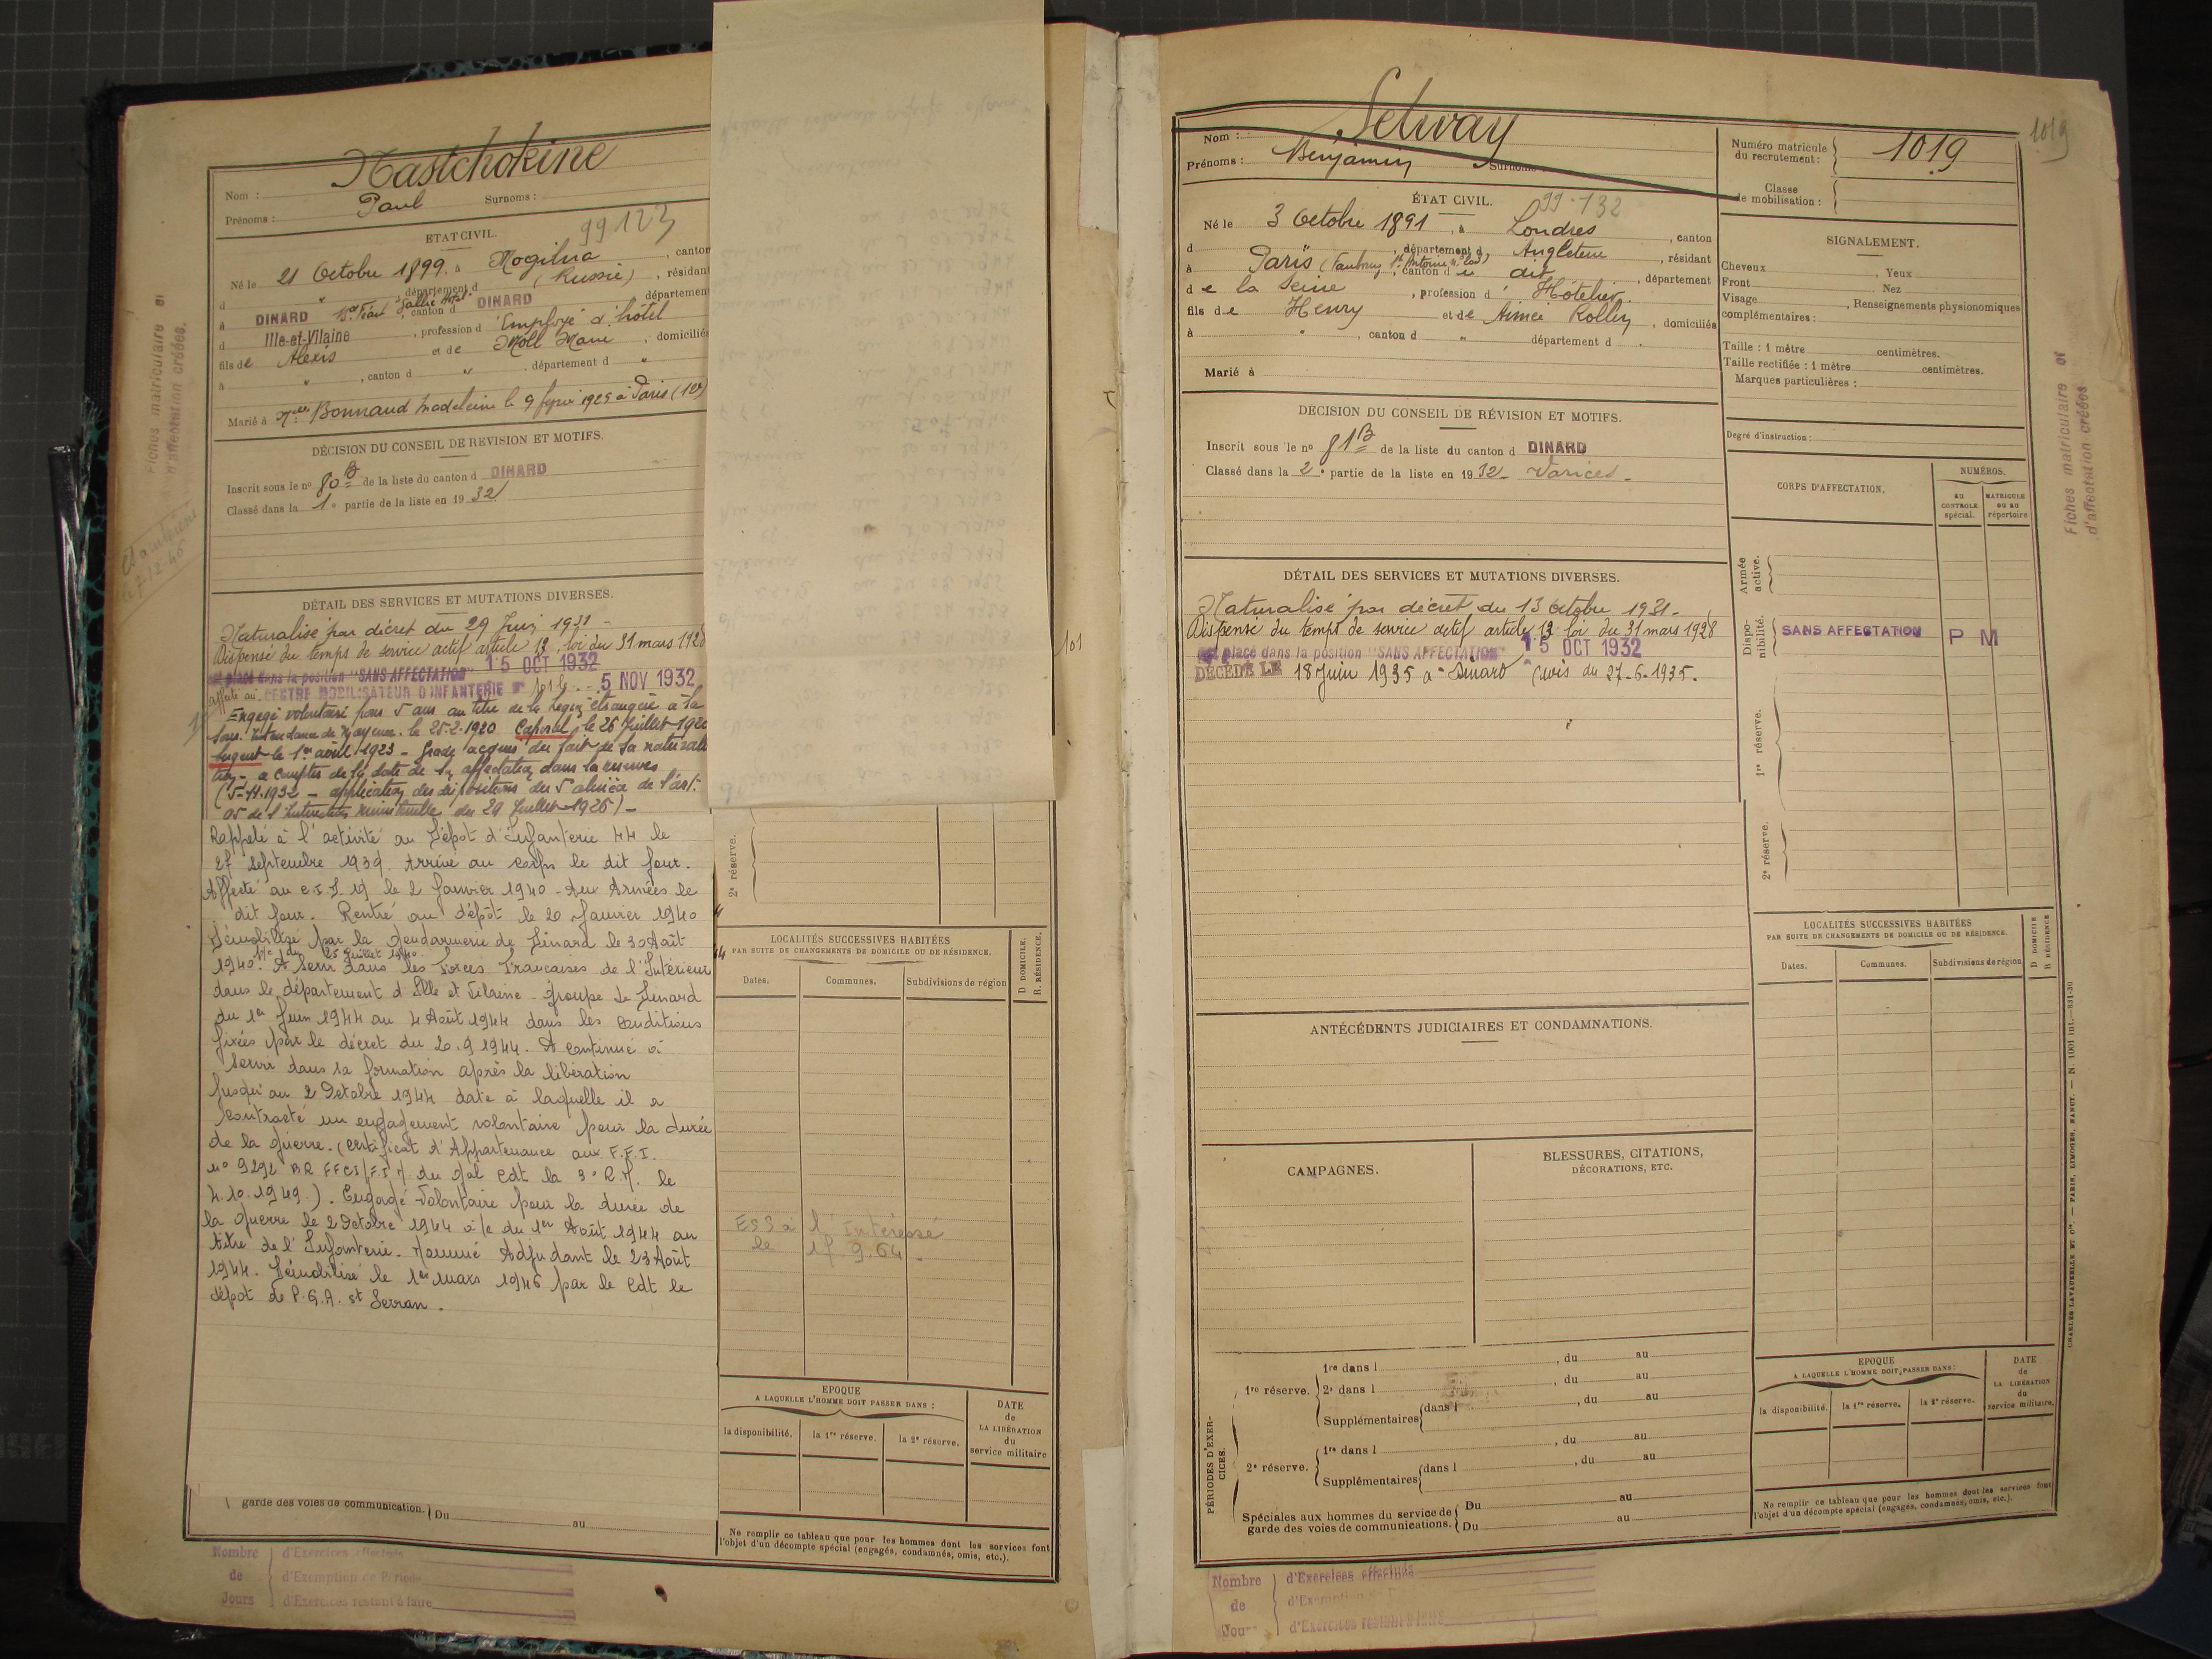 Nom : Nastchokine
Prénoms : Paul Surnoms :
ETAT CIVIL.
99 123
Né le 21 Octobre 1899, à Mogilna, canton
d " département d (Russie), résidant
à DINARD Bd Féart, canton d DINARD département
d Ille-et-Vilaine, profession d' Employé d'hôtel
fils de Alexis et de Moll Marie, domiciliés
à " , canton d " département d "
Marié à Melle Bonnaud Madeleine le 9 1929 à Paris
DÉCISION DU CONSEIL DE REVISION ET MOTIFS.
Inscrit sous le no 80 B de la liste du canton d DINARD
Classé dans la 1e partie de la liste en 1932
DÉTAIL DES SERVICES ET MUTATIONS DIVERSES.
Naturalisé par décret du 29 Juin 1931 -
Dispensé du temps de service actif article 12, loi du 31 mars 1928
est placé dans la position "SANS AFFECTATION" 15 OCT 1932
affecté au CENTRE MOBILISATEUR D'INFANTERIE N° 5 NOV 1932
Engagé volontaire pour 5 ans au titre de la Légion étrangère à la
Sous Intendance de Mayence le 25.2.1920 Caporal le 26 Juillet 1920
Sergent le 1er août 1923 - Grade acquis du fait de sa naturalisa
tion - à compter de la date de son affectation dans la réserve
(5-11.1932 - application des dispositions du 5 alinéa de l'art.
05 de l'Instruction ministérielle du 29 Juillet 1926) -
Rappelé à l'activité au Dépôt d'Infanterie 44 le
27 Septembre 1939. Arrivé au corps le dit jour.
Affecté au C.I.I. 19 le 2 Janvier 1940 - Aux Armées le
dit jour. Rentré au dépôt le 20 Janvier 1940
Démobilisé par la Gendarmerie de Dinard le 30 Août
1940. A servi dans les Forces Françaises de l'Intérieur
dans le département d'Ille et Vilaine - Groupe de Dinard
du 1er Juin 1944 au 4 Août 1944 dans les conditions
fixées par le décret du 20.9.1944. A continué à
servir dans sa formation après la libération
jusqu'au 2 Octobre 1944 date à laquelle il a
contracté un engagement volontaire pour la durée
de la guerre. (Certificat d'Appartenance aux F.F.I.
no 9292 BR FFCI/F.I.M. du Gal Cdt la 3e R.M. le
4.10.1949.). Engagé Volontaire pour la durée de
la guerre le 2 Octobre 1944 à/c du 1er Août 1944 au
titre de l'Infanterie. Nommé Adjudant le 23 Août
1944. Démobilisé le 1er Mars 1946 par le Cdt le
dépôt de P.G.A. St Servan.
garde des voies de communication. Du au
Nombre de Jours
d'Exercices effectués
d'Exemption de Période
d'Exercices restant à faire
Fiches matriculaire et
d'affectation créées.
101
2e réserve.
LOCALITÉS SUCCESSIVES HABITÉES
PAR SUITE DE CHANGEMENTS DE DOMICILE OU DE RÉSIDENCE.
D. DOMICILE.
R. RÉSIDENCE.
Dates. Communes. Subdivisions de région
ES3 à l'Intéressé
le 17.9.64.
EPOQUE
A LAQUELLE L'HOMME DOIT PASSER DANS :
la disponibilité. la 1re réserve. la 2e réserve.
DATE
de
LA LIBÉRATION
du
service militaire
Ne remplir ce tableau que pour les hommes dont les services font
l'objet d'un décompte spécial (engagés, condamnés, omis, etc.).
1019
Nom : Selway
Prénoms : Benjamin Surnoms
Numéro matricule
du recrutement : 1019
Classe
de mobilisation :
ÉTAT CIVIL.
99-132
Né le 3 Octobre 1891, à Londres, canton
d , département d Angleterre, résidant
à Paris (Faubourg St Antoine), canton d u dit, département
d e la Seine, profession d' Hôtelier
fils de Henry et de Aimée Rollin, domiciliés
à " , canton d " département d
Marié à
SIGNALEMENT.
Cheveux , Yeux
Front Nez
Visage , Renseignements physionomiques
complémentaires :
Taille : 1 mètre centimètres.
Taille rectifiée : 1 mètre centimètres.
Marques particulières :
Degré d'instruction :
DÉCISION DU CONSEIL DE RÉVISION ET MOTIFS.
Inscrit sous le no 81 B de la liste du canton d DINARD
Classé dans la 2e partie de la liste en 1932 - Varices -
DÉTAIL DES SERVICES ET MUTATIONS DIVERSES.
Naturalisé par décret du 13 Octobre 1931 -
Dispensé du temps de service actif article 12 loi du 31 mars 1928
est placé dans la position "SANS AFFECTATION" 15 OCT 1932
DÉCÉDÉ LE 18 Juin 1935 à Dinard (avis du 27-6-1935.
CORPS D'AFFECTATION.
NUMÉROS.
AU CONTROLE spécial.
MATRICULE OU AU répertoire
Armée active.
Disponibilité. SANS AFFECTATION P M
1re réserve.
2e réserve.
Fiches matriculaire et
d'affectation créées
ANTÉCÉDENTS JUDICIAIRES ET CONDAMNATIONS.
LOCALITÉS SUCCESSIVES HABITÉES
PAR SUITE DE CHANGEMENTS DE DOMICILE OU DE RÉSIDENCE.
D DOMICILE
R RÉSIDENCE
Dates. Communes. Subdivisions de région
CAMPAGNES.
BLESSURES, CITATIONS,
DÉCORATIONS, ETC.
PÉRIODES D'EXERCICES.
1re réserve.
1re dans l , du au
2e dans l , du au
Supplémentaires dans l , du au
2e réserve.
1re dans l , du au
Supplémentaires dans l , du au
Spéciales aux hommes du service de
garde des voies de communications.
Du au
Du au
EPOQUE
A LAQUELLE L'HOMME DOIT PASSER DANS :
la disponibilité. la 1re réserve. la 2e réserve.
DATE
de
LA LIBÉRATION
du
service militaire.
Ne remplir ce tableau que pour les hommes dont les services font
l'objet d'un décompte spécial (engagés, condamnés, omis, etc.).
CHARLES-LAVAUZELLE ET Cie. — PARIS, LIMOGES, NANCY.
Nombre de Jour
d'Exercices effectués
d'Exemption
d'Exercices restant à faire